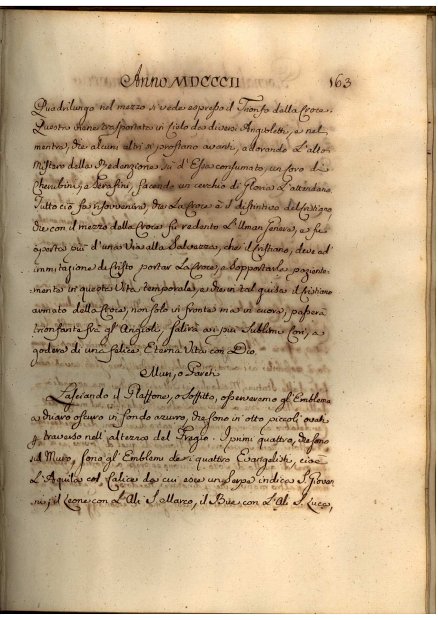 Anno MDCCCII 163
Quadrilungo nel mezzo si vede espresso il Trionfo della Croce.
Questa viene trasportata in Cielo da diversi Angioletti, e nel
mentre, che alcuni altri si prostrano avanti, adorando L'alto
Mistero della Redenzione su d'Essa consumato, un Coro di
Cherubini, e Serafini, facendo un cerchio di Gloria L'attendano.
Tutto ciò fa risovvenire, che La Croce è il distintivo del Cristiano
che con il mezzo della Croce fu redento L'Uman Genere, e fu
aperta più d'una Via alla Salvezza, che il Cristiano, deve ad
immitazione di Cristo portar La Croce, e sopportarla paziente-
mente in questa Vita temporale, e che in tal guisa il Cristiano
armato della Croce, non solo in fronte ma in cuore, passerà
trionfante frà gl'Angioli, salirà ai più Sublimi Cori, a
godere di una felice, Eterna Vita con Dio.
Muri, o Pareti
Lasciando il Plaffone, o Soffitto, osserveremo gl'Emblemi
a chiaro oscuro in fondo azurro, che sono in otto piccoli ovati
traverso nell'altezza del Fregio. I primi quattro, che sono
sul Muro, sono gl'Emblemi de i quattro Evangelisti, cioè
L'Aquila col Calice da cui esce un Serpe indica S. Giovan-
ni, il Leone con L'Ali S. Marco, il Bue con L'Ali S. Luca,